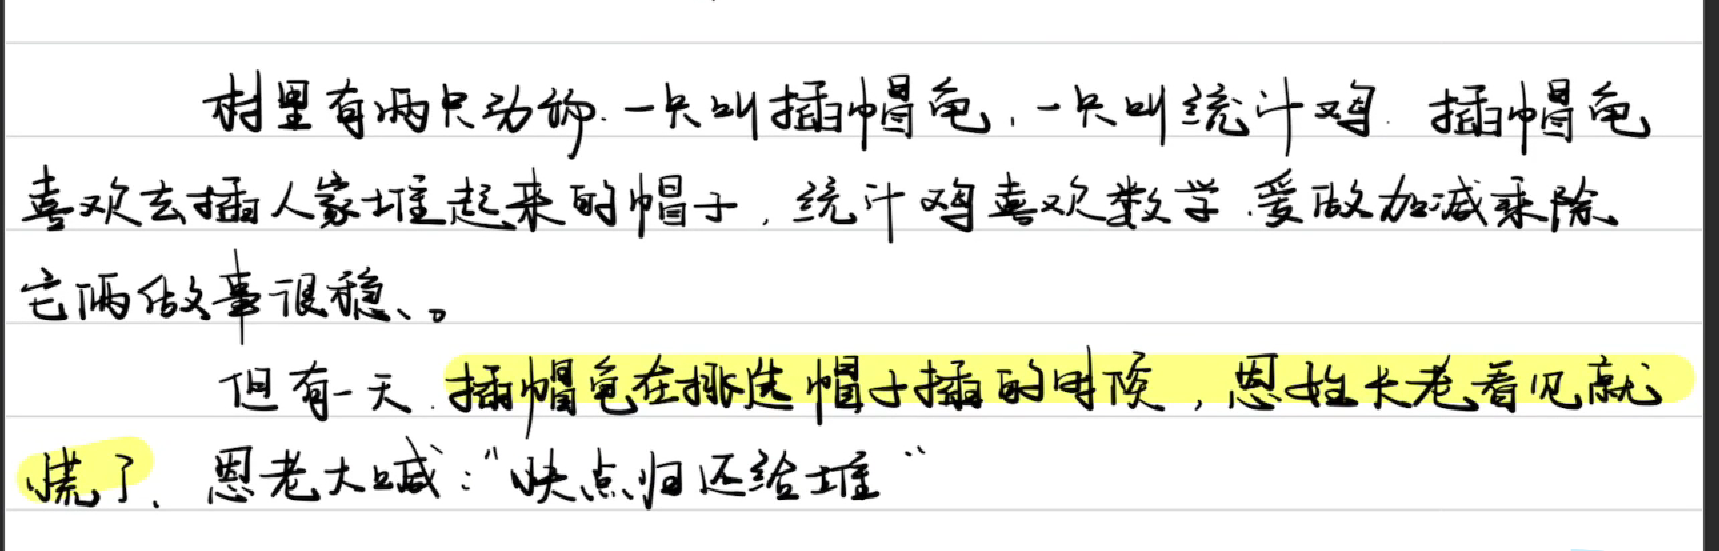 村里有两只动物.一只叫插帽龟,一只叫统计鸡.插帽龟
喜欢去插人家堆起来的帽子,统计鸡喜欢数学.爱做加减乘除、
它俩做事很稳、。
但有一天.插帽龟在挑选帽子插的时候,恩姓长老看见就
慌了、恩老大喊:“快点归还给堆”